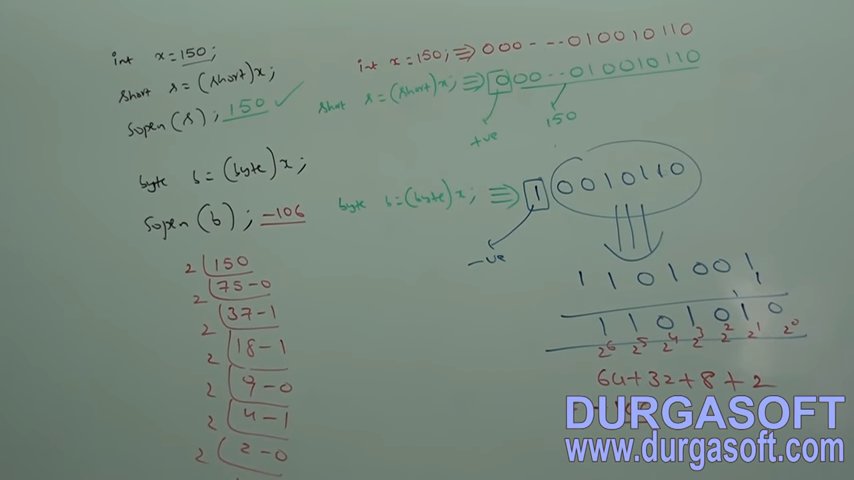 int x=150;
short s=(short)x;
Sopen(s); 150 ✓
byte b=(byte)x;
Sopen(b); -106
2 150
2 75-0
2 37-1
2 18-1
2 9-0
2 4-1
2 2-0
int x=150; ⇒ 000---- 010010110
short s=(short)x; ⇒ 000--- 010010110
+ve
150
byte b=(byte)x; ⇒ 1 0010110
-ve
1101001
1
1101010
2^6 2^5 2^4 2^3 2^2 2^1 2^0
64+32+8+2
DURGASOFT
www.durgasoft.com